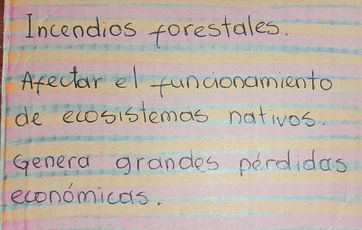 Incendios forestales.
Afectar el funcionamiento
de ecosistemas nativos.
Genera grandes pérdidas
económicas.